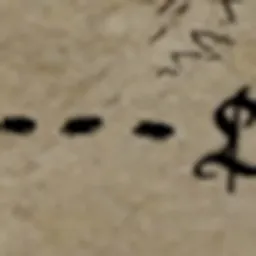 - - - £